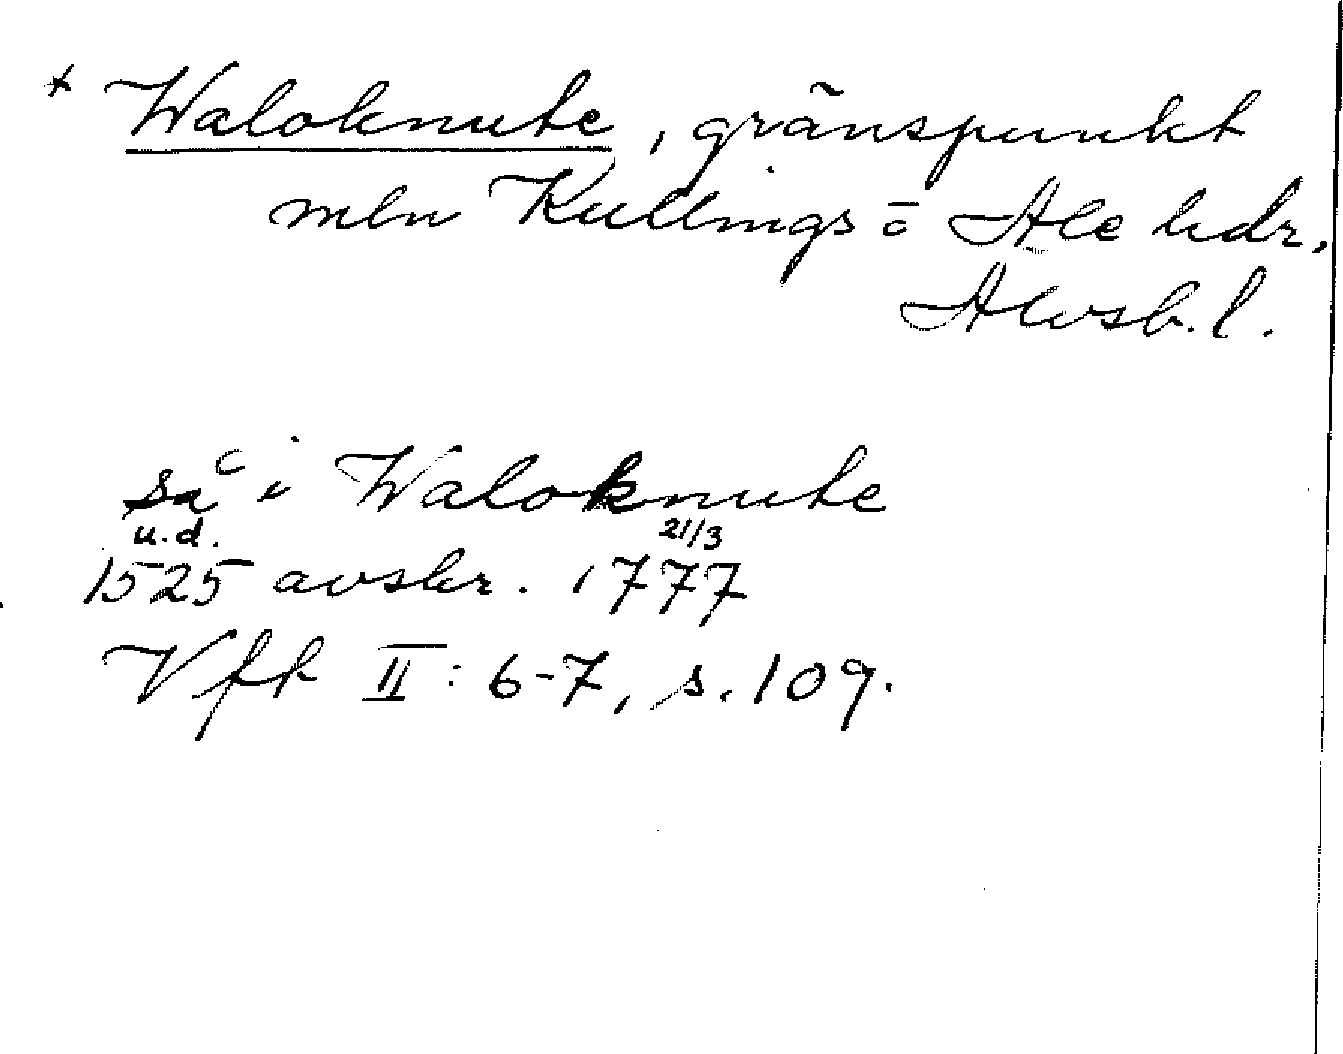 * Waloknute, gränspunkt
mln Kullings o Ale hdr,
Älvsb. l.
så i Waloknute
u.d. 21/3
1525 avskr. 1777
Vft II: 6-7, s. 109.